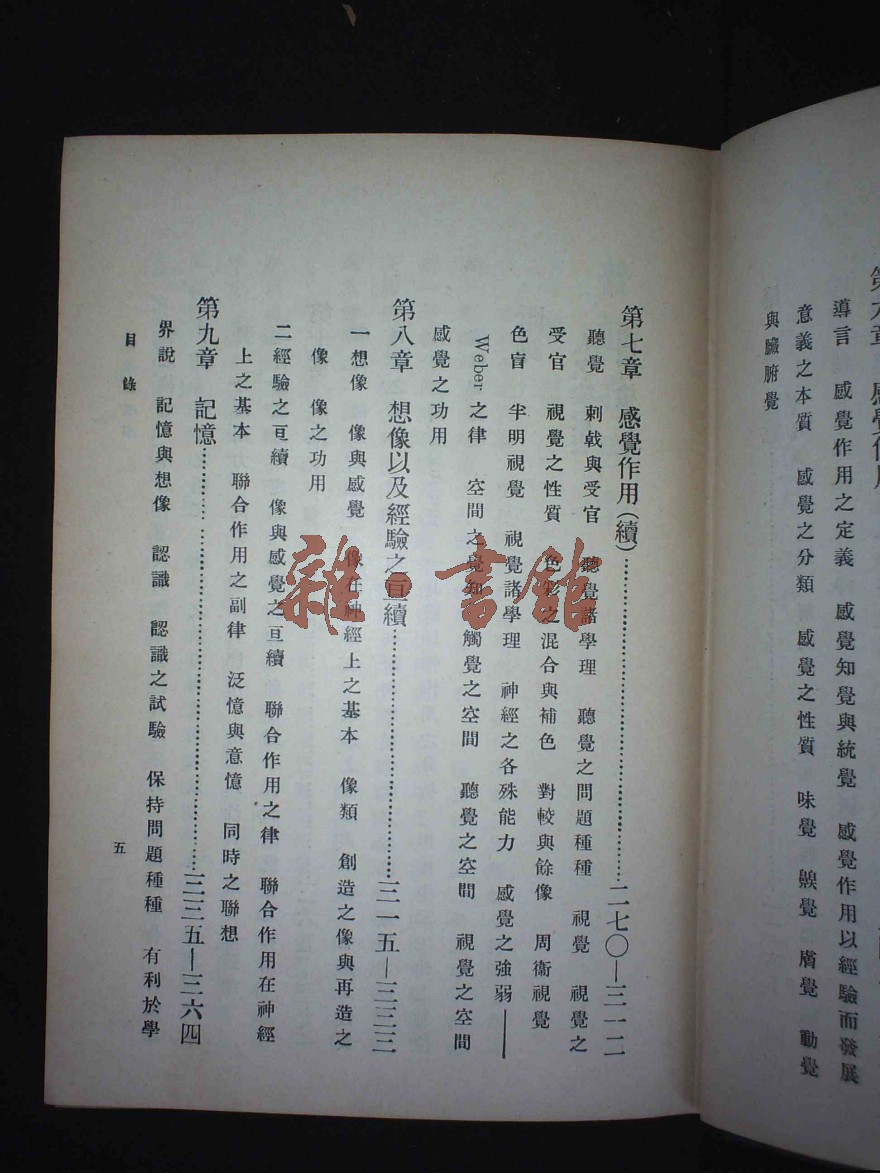 導言　感覺作用之定義　感覺知覺與統覺　感覺作用以經驗而發展
意義之本質　感覺之分類　感覺之性質　味覺　嗅覺　膚覺　動覺
與臟腑覺
第七章　感覺作用(續)……二七〇—三一二
聽覺　刺戟與受官　聽覺諸學理　聽覺之問題種種　視覺　視覺之
受官　視覺之性質　色彩之混合與補色　對較與餘像　周衞視覺
色盲　半明視覺　視覺諸學理　神經之各殊能力　感覺之強弱——
Weber之律　空間之覺知　觸覺之空間　聽覺之空間　視覺之空間
感覺之功用
第八章　想像以及經驗之亘續……三一五—三三三
一想像　像與感覺　像在神經上之基本　像類　創造之像與再造之
像　像之功用
二經驗之亘續　像與感覺之亘續　聯合作用之律　聯合作用在神經
上之基本　聯合作用之副律　泛憶與意憶　同時之聯想
第九章　記憶……三三五—三六四
界說　記憶與想像　認識　認識之試驗　保持問題種種　有利於學
目錄
五
雜·書館